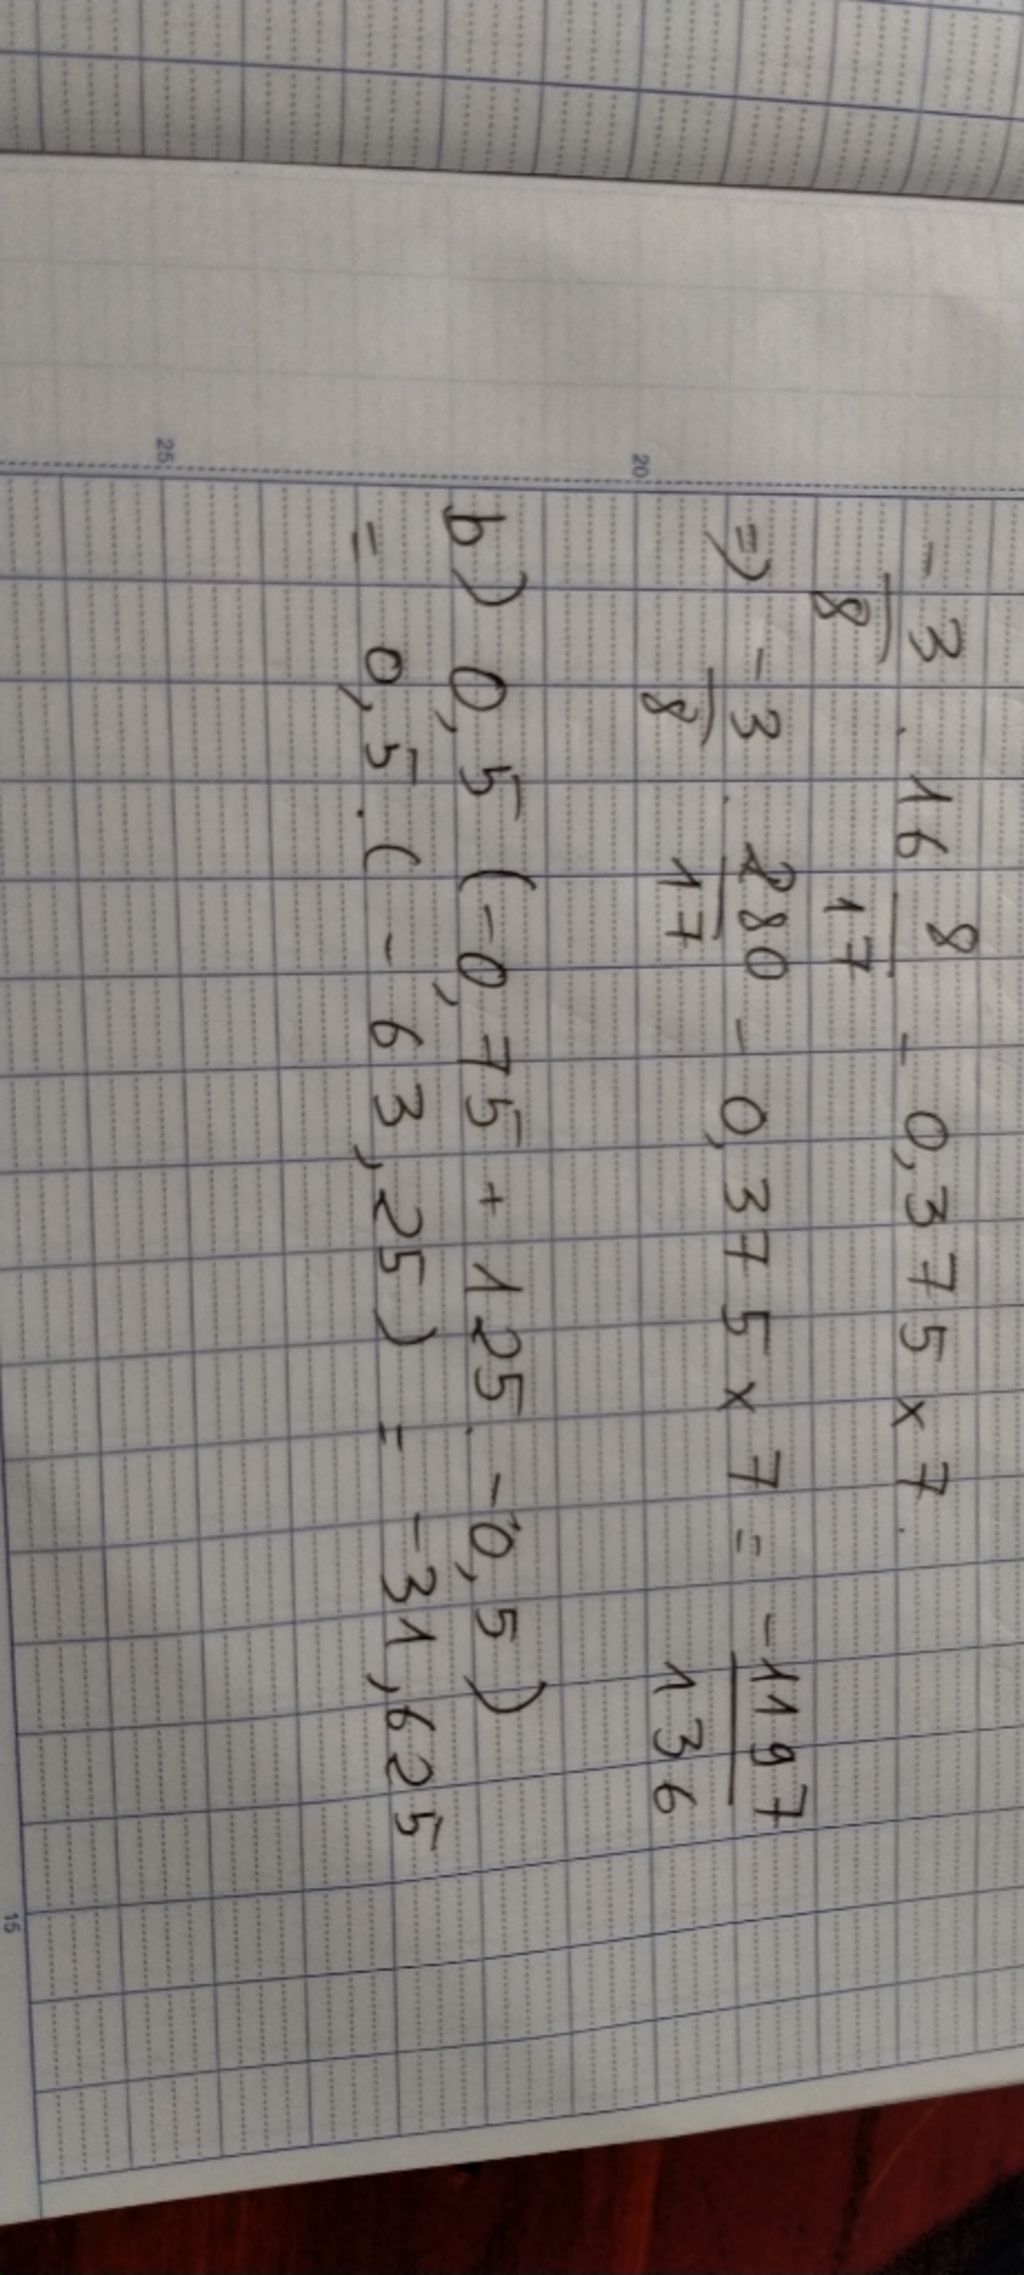 -3/8 . 16 8/17 - 0,375 x 7.
=) -3/8 . 280/17 - 0,375 x 7 = -1197/136
20
b) 0,5 (-0,75 + 125 . -0,5)
= 0,5 . ( - 63,25 ) = -31,625
25
15